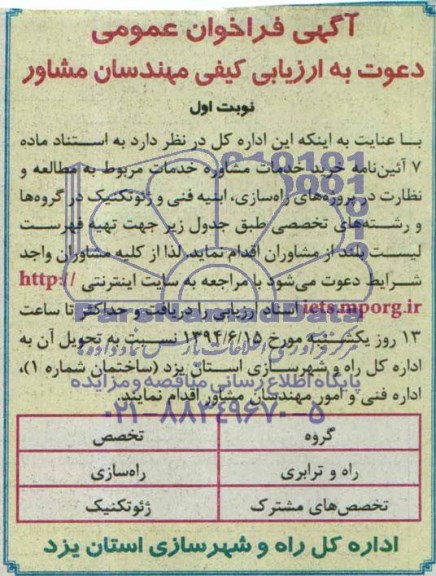 آگهی فراخوان عمومی
دعوت به ارزیابی کیفی مهندسان مشاور
نوبت اول
با عنایت به اینکه این اداره کل در نظر دارد به استناد ماده
۷ آئین‌نامه خرید خدمات مشاوره خدمات مربوط به مطالعه و
نظارت در پروژه‌های راه‌سازی، ابنیه فنی و ژئوتکنیک در گروه‌ها
و رشته‌های تخصصی طبق جدول زیر جهت تهیه فهرست
لیست بلند از مشاوران اقدام نماید. لذا از کلیه مشاوران واجد
شرایط دعوت می‌شود با مراجعه به سایت اینترنتی http://
iets.mporg.ir اسناد ارزیابی را دریافت و حداکثر تا ساعت
۱۳ روز یکشنبه مورخ ۱۳۹۴/۶/۱۵ نسبت به تحویل آن به
اداره کل راه و شهرسازی استان یزد (ساختمان شماره ۱)،
اداره فنی و امور مهندسان مشاور اقدام نمایند.
گروه تخصص
راه و ترابری راه‌سازی
تخصص‌های مشترک ژئوتکنیک
اداره کل راه و شهرسازی استان یزد
ParsNamadData
پایگاه اطلاع رسانی مناقصه و مزایده
۰۲۱-۸۸۳۴۹۶۷۰-۵